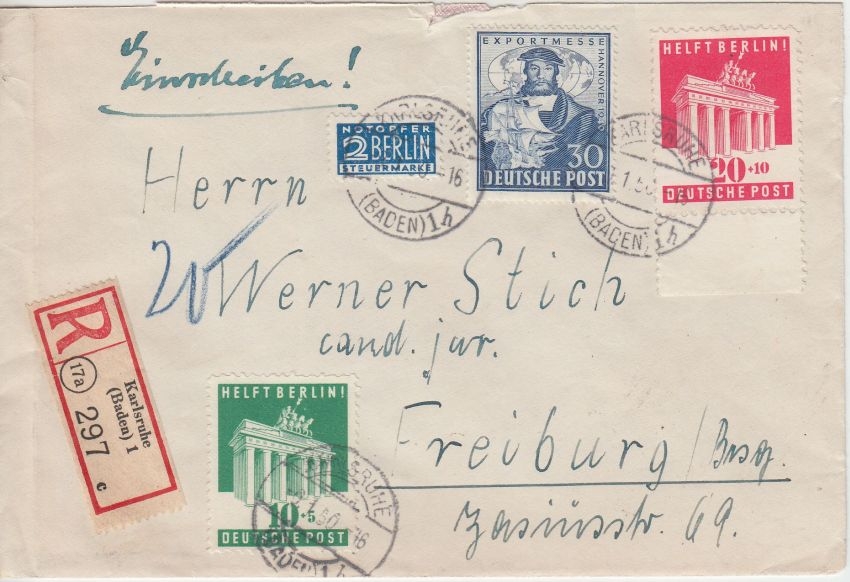 Einschreiben!
EXPORTMESSE HANNOVER 1949
30
DEUTSCHE POST
HELFT BERLIN!
20+10
DEUTSCHE POST
NOTOPFER
2 BERLIN
STEUERMARKE
KARLSRUHE
16
(BADEN) 1 h
KARLSRUHE
1.50
(BADEN) 1 h
Herrn
20
Werner Stich
cand. jur.
Freiburg/Brsg.
Zasiusstr. 69.
R
17a
Karlsruhe
(Baden) 1
297
c
HELFT BERLIN!
10+5
DEUTSCHE POST
KARLSRUHE
1.50 16
(BADEN) 1 h